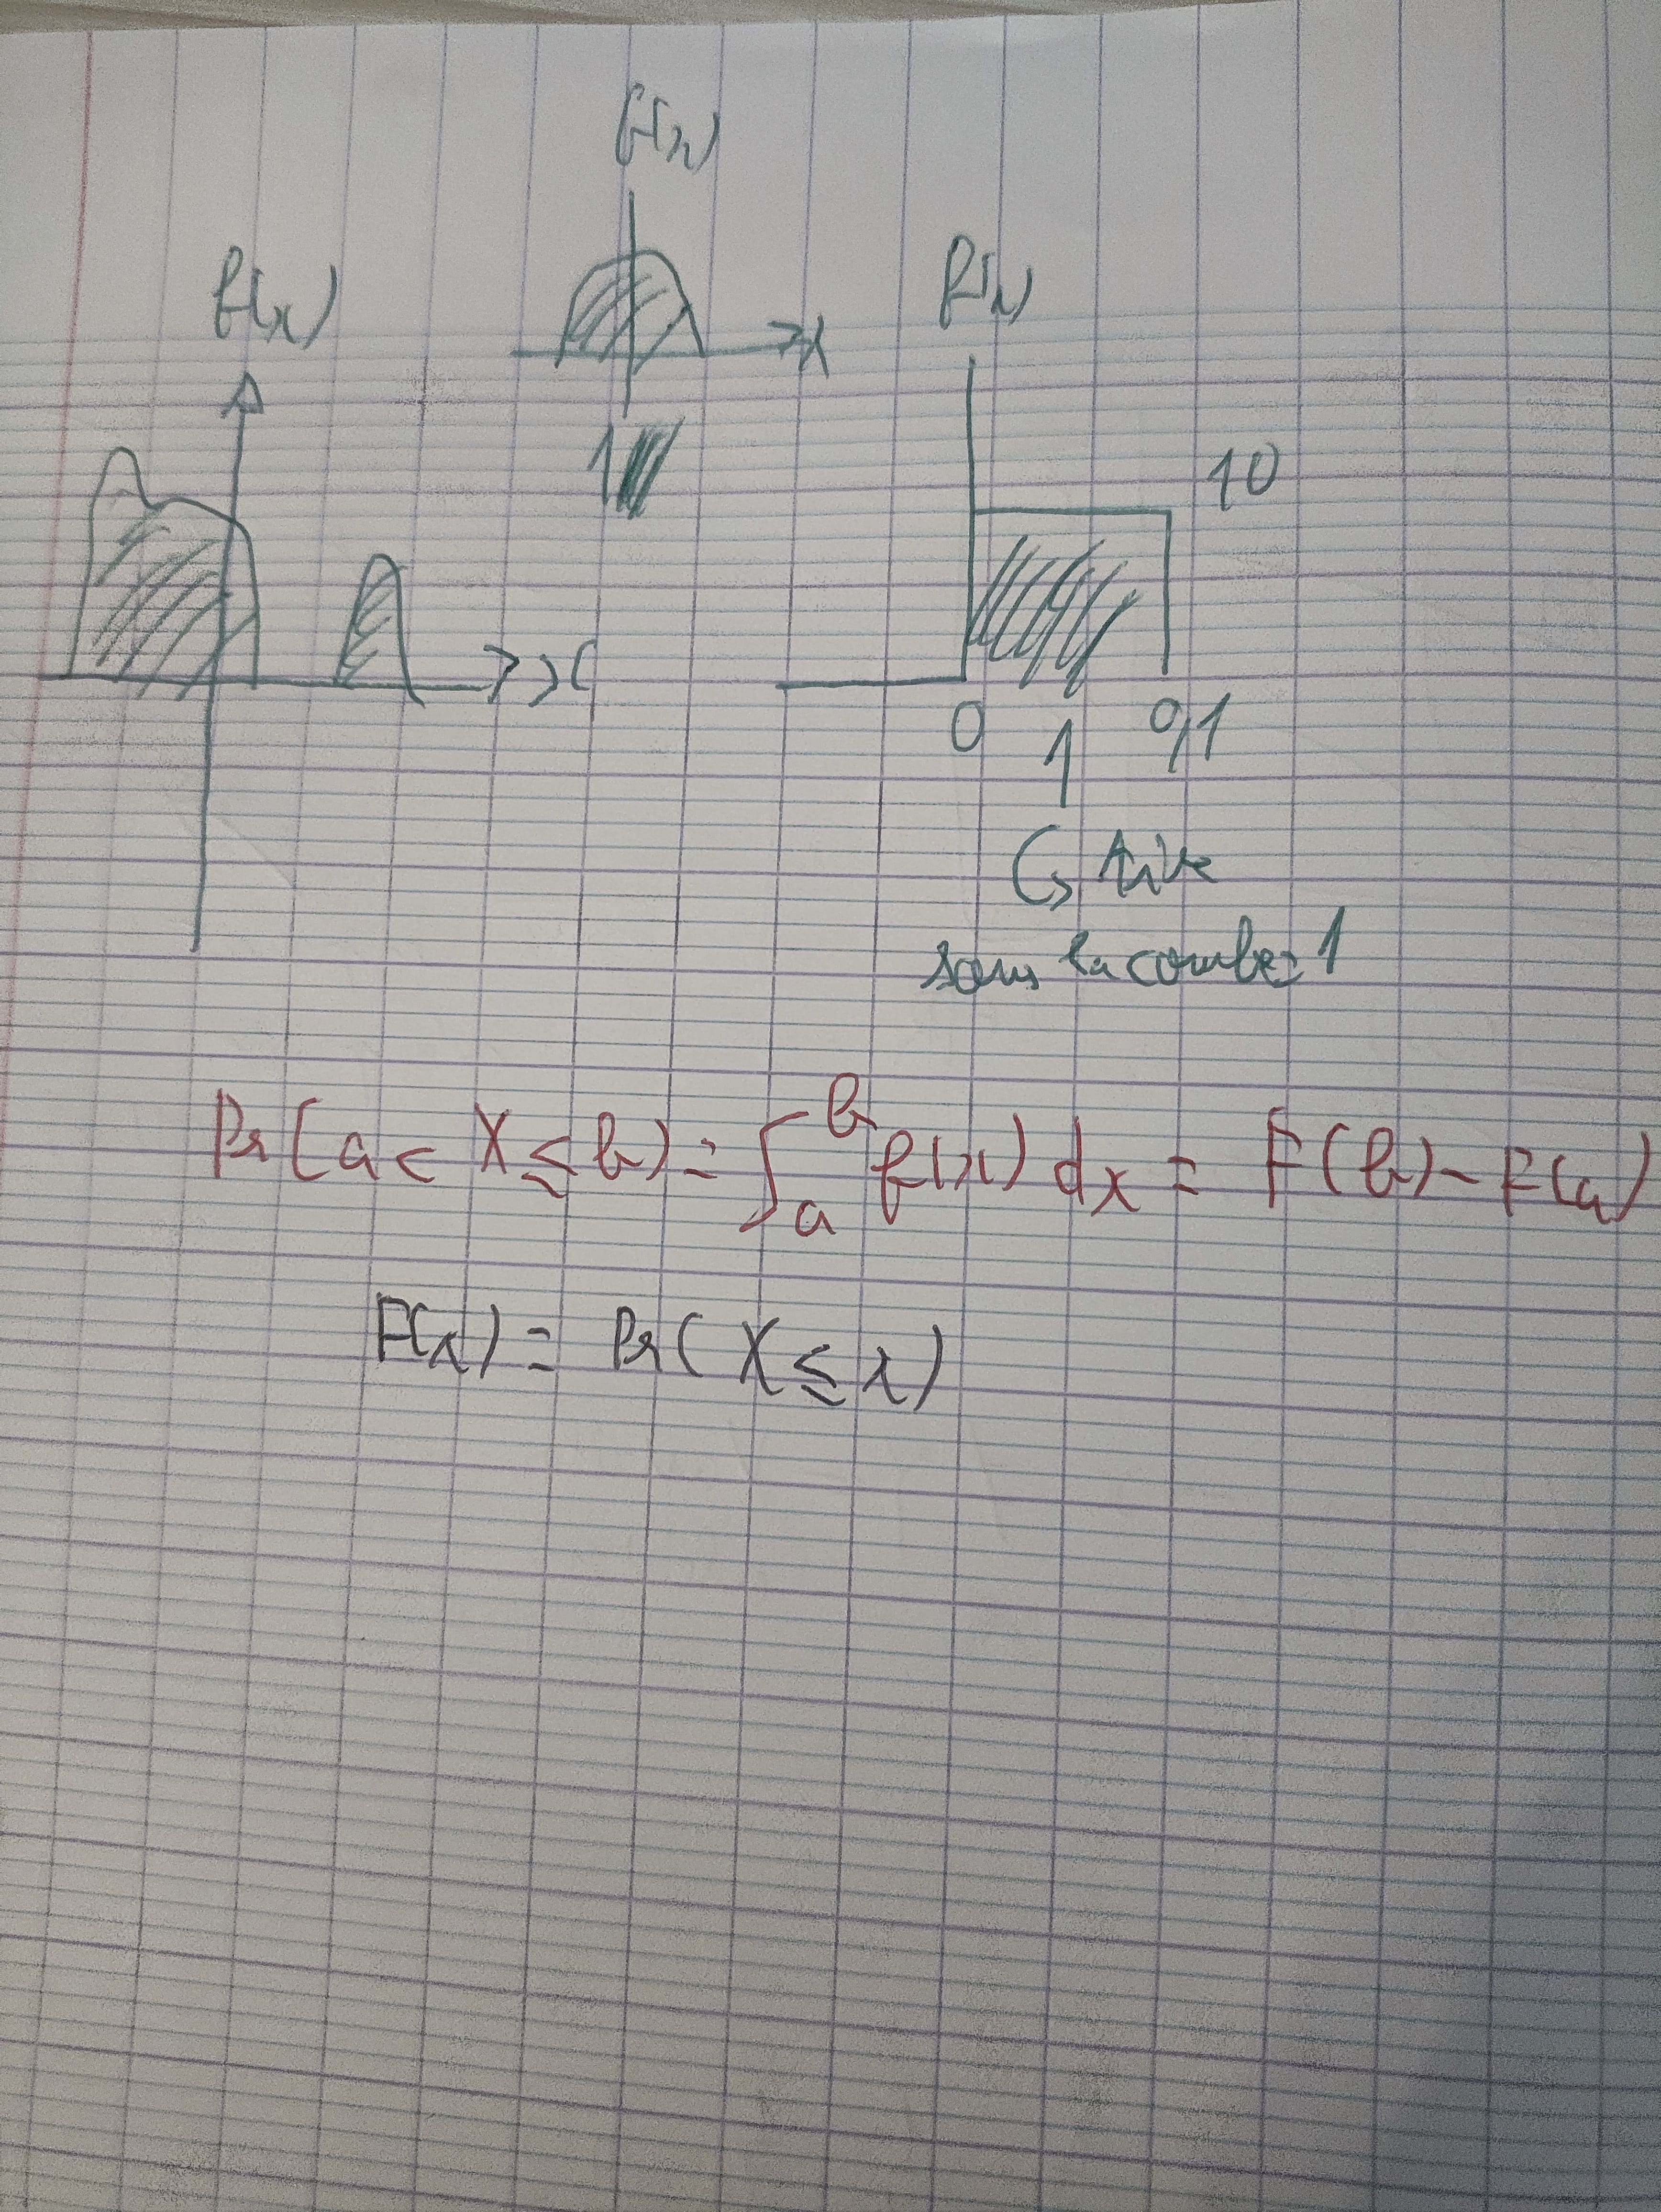 f(x)
f(x)
f(x)
x
1
10
x
0 0,1
1
↳ Aire
sous la courbe = 1
Pr(a < X ≤ b) = ∫ₐᵇ f(x) dx = F(b) - F(a)
F(x) = Pr(X ≤ x)